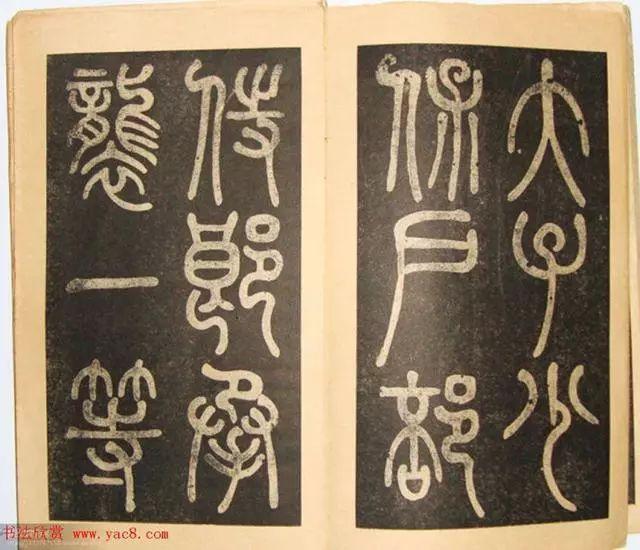 大子少
保戶部
侍郎承
襲一等
书法欣赏 www.yac8.com